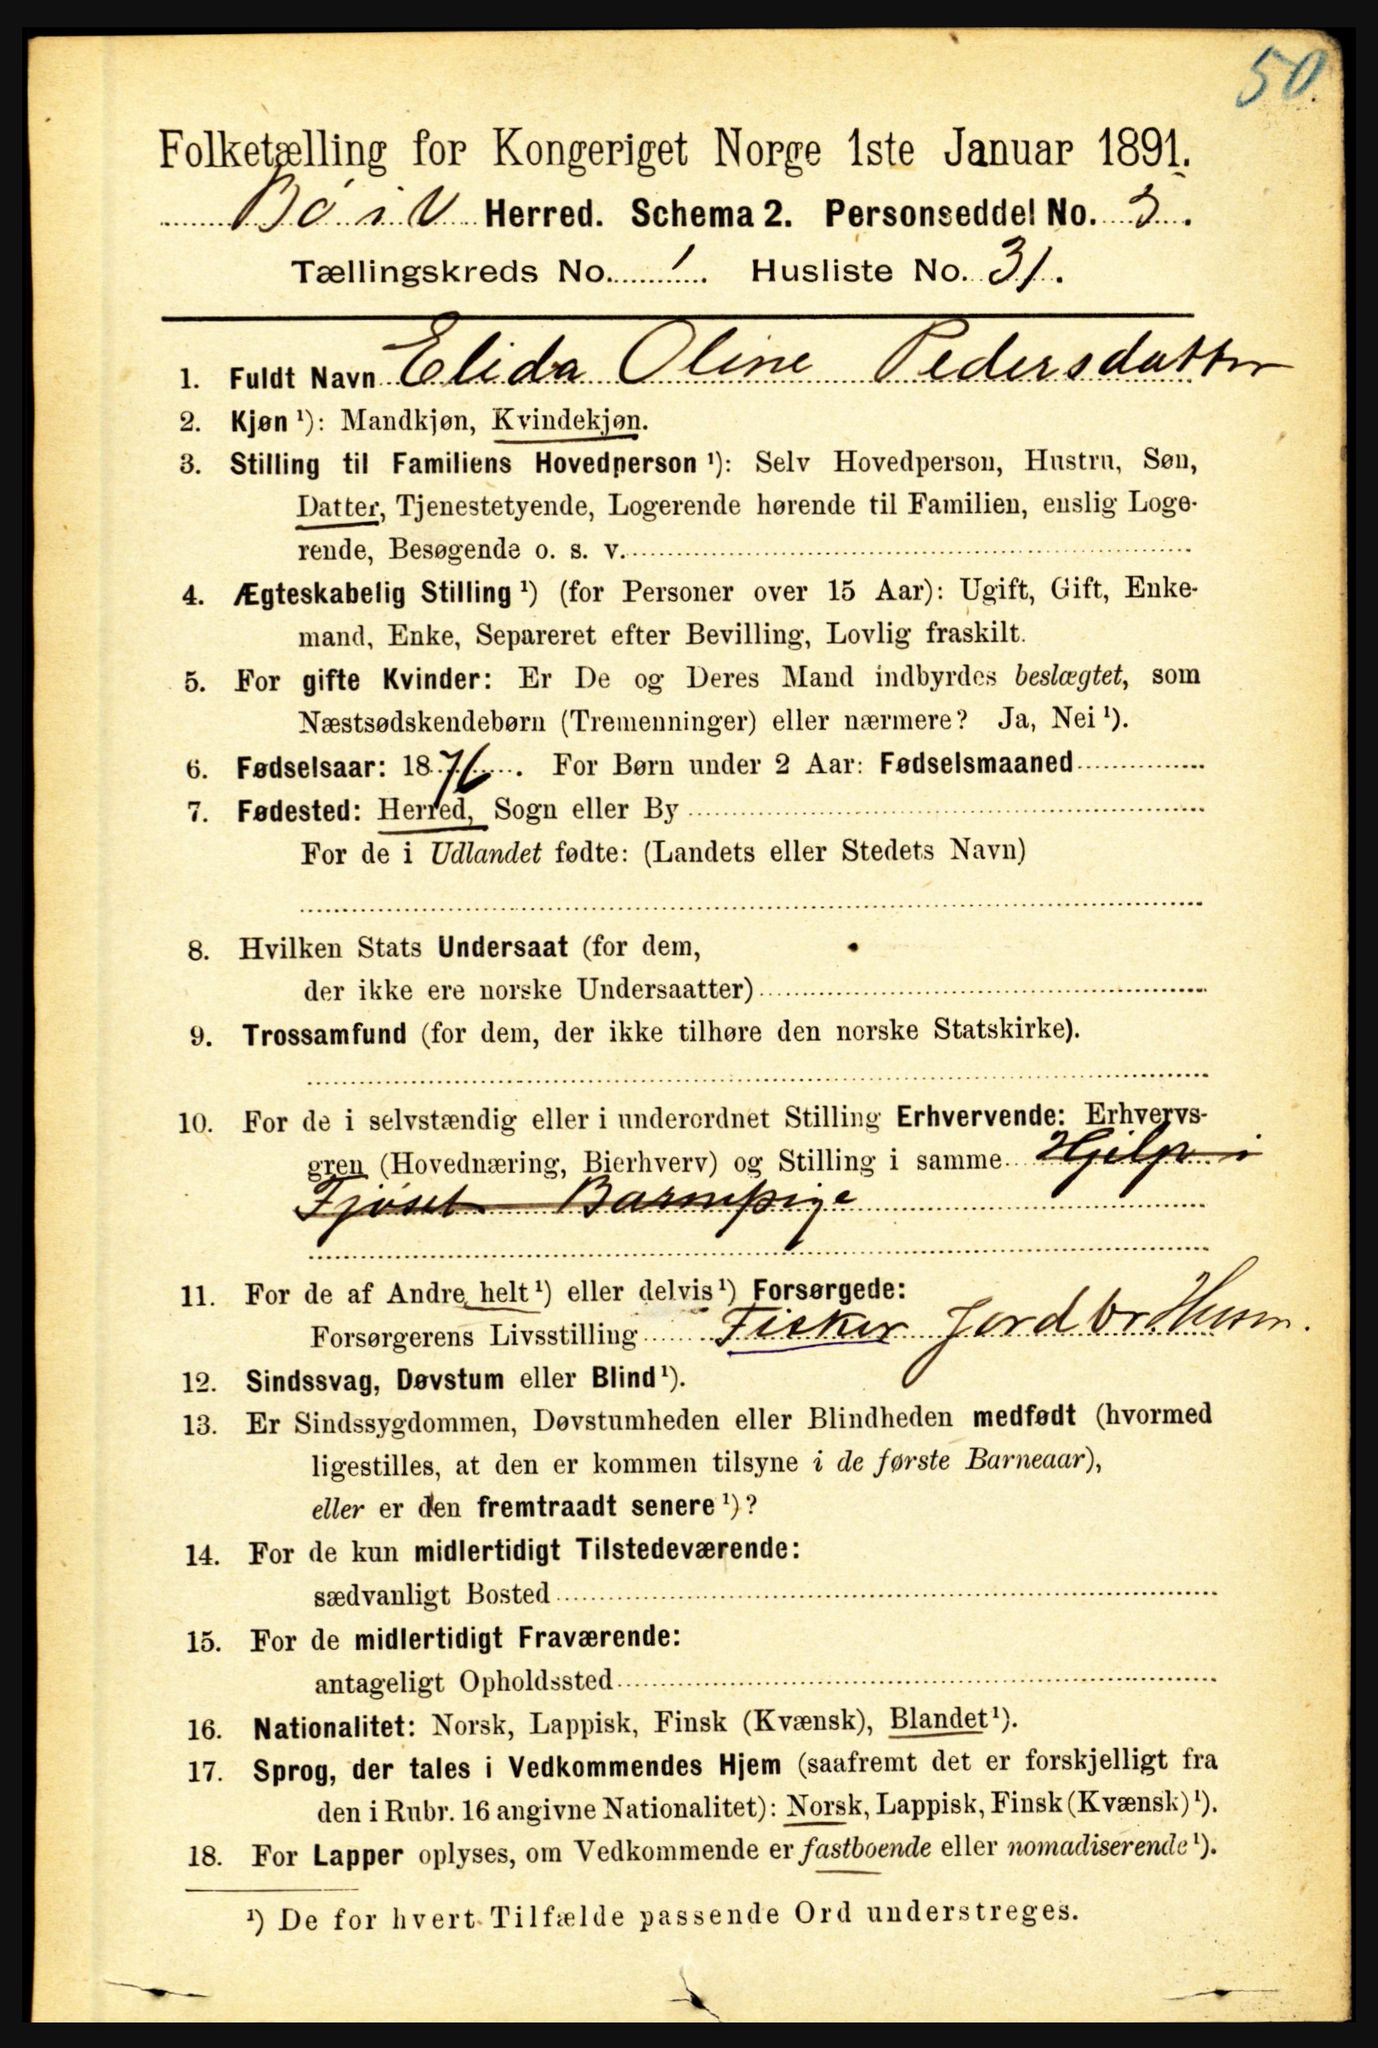 50.
Folketælling for Kongeriget Norge 1ste Januar 1891.
Bø i V Herred. Schema 2. Personseddel No. 3.
Tællingskreds No. 1. Husliste No. 31.
1. Fuldt Navn Elida Oline Pedersdatter
2. Kjøn ¹): Mandkjøn, Kvindekjøn.
3. Stilling til Familiens Hovedperson ¹): Selv Hovedperson, Hustru, Søn,
Datter, Tjenestetyende, Logerende hørende til Familien, enslig Loge-
rende, Besøgende o. s. v.
4. Ægteskabelig Stilling ¹) (for Personer over 15 Aar): Ugift, Gift, Enke-
mand, Enke, Separeret efter Bevilling, Lovlig fraskilt.
5. For gifte Kvinder: Er De og Deres Mand indbyrdes beslægtet, som
Næstsødskendebørn (Tremenninger) eller nærmere? Ja, Nei ¹).
6. Fødselsaar: 1876. For Børn under 2 Aar: Fødselsmaaned
7. Fødested: Herred, Sogn eller By
For de i Udlandet fødte: (Landets eller Stedets Navn)
8. Hvilken Stats Undersaat (for dem,
der ikke ere norske Undersaatter)
9. Trossamfund (for dem, der ikke tilhøre den norske Statskirke).
10. For de i selvstændig eller i underordnet Stilling Erhvervende: Erhvervs-
gren (Hovednæring, Bierhverv) og Stilling i samme Hjelp i
Fjøset Barnepige
11. For de af Andre helt ¹) eller delvis ¹) Forsørgede:
Forsørgerens Livsstilling Fisker Jordbr Husm.
12. Sindssvag, Døvstum eller Blind ¹).
13. Er Sindssygdommen, Døvstumheden eller Blindheden medfødt (hvormed
ligestilles, at den er kommen tilsyne i de første Barneaar),
eller er den fremtraadt senere ¹)?
14. For de kun midlertidigt Tilstedeværende:
sædvanligt Bosted
15. For de midlertidigt Fraværende:
antageligt Opholdssted
16. Nationalitet: Norsk, Lappisk, Finsk (Kvænsk), Blandet ¹).
17. Sprog, der tales i Vedkommendes Hjem (saafremt det er forskjelligt fra
den i Rubr. 16 angivne Nationalitet): Norsk, Lappisk, Finsk (Kvænsk) ¹).
18. For Lapper oplyses, om Vedkommende er fastboende eller nomadiserende ¹).
¹) De for hvert Tilfælde passende Ord understreges.